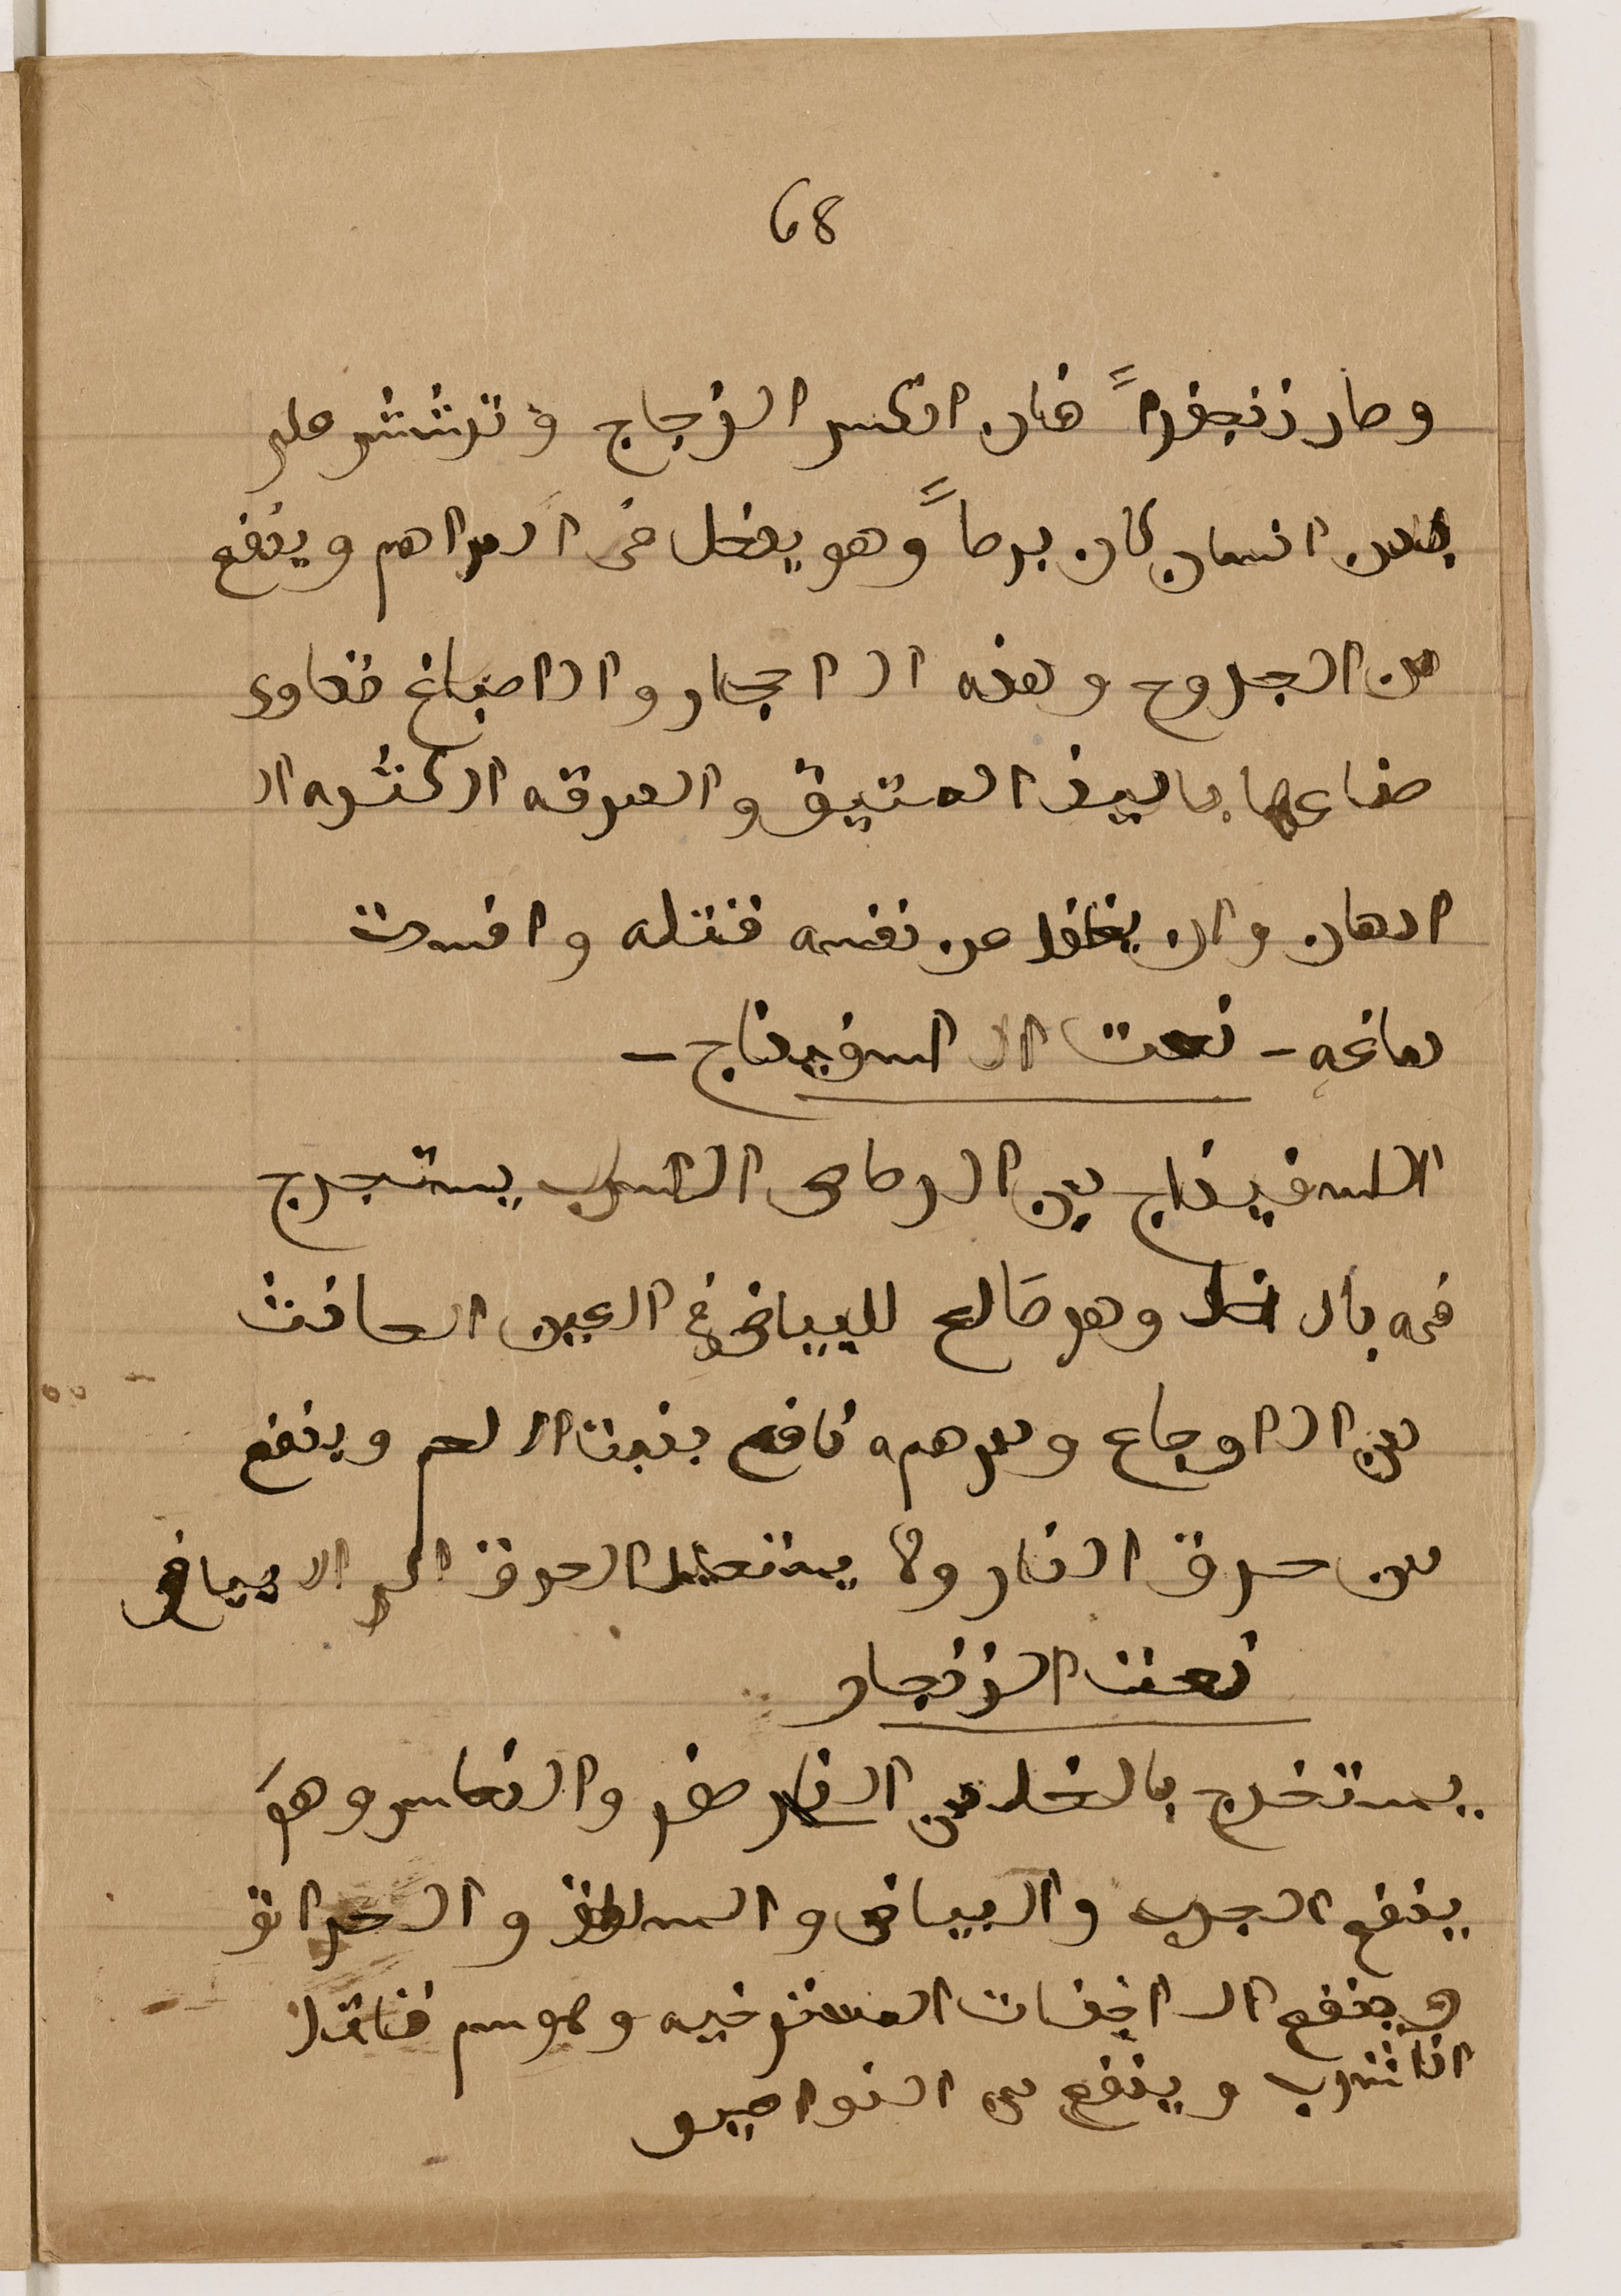 68
وصار زنجفراً فان انكسر الزجاج وترشش على
بدن انسان كان برصاً وهو يدخل فى المراهم وينفع
من الجروح وهذه الاحجار والاصباغ تداوى
صناعها بالبيذ العتيق والمرقه الكثيره ال
ادهان وان يغفل عن نفسه قتله وافسدت
دماغه – نعت الاسفيداج –
السفيداج من الرصاص الاسرب يستخرج
فيه بال خل وهو صالح للبياض فى العين الحادث
من الاوجاع ومرهمه نافع ينبت اللحم وينفع
من حرق النار ولا يستحيل الحرق الى الابياض
نعت الزنجار
يستخرج بالخل من النار صفر والنحاس وهو
ينفع الجرب والبياض والسلاق والحرانق
وينفع الاجفات المسترخيه وهو سم قاتل
اذا شرب وينفع من النواصير